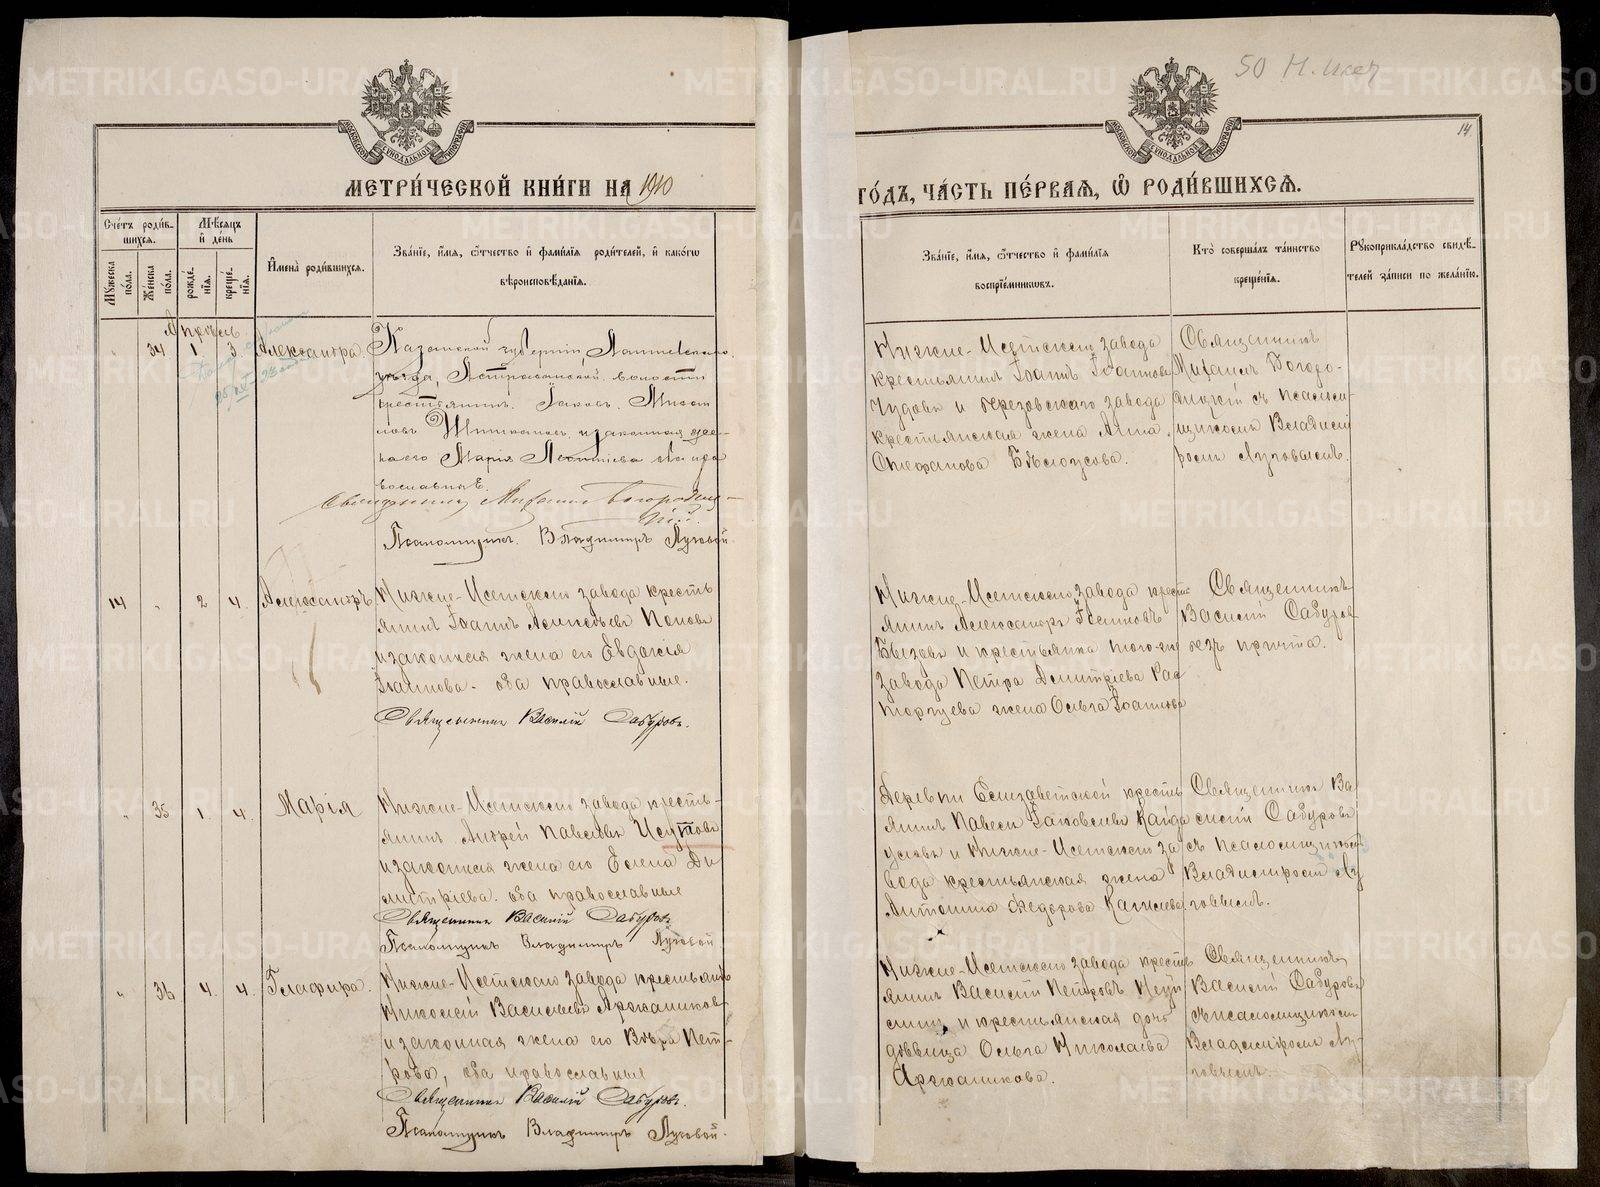 50
14
МОСКОВСКОЙ СѴНОДАЛЬНОЙ ТИПОГРАФІИ
МОСКОВСКОЙ СѴНОДАЛЬНОЙ ТИПОГРАФІИ
МЕТРИ́ЧЕСКОЙ КНИ́ГИ НА 1910
ГО́ДЪ, ЧА́СТЬ ПЕ́РВАЯ, Ѽ РОДИ́ВШИХСЯ.
Сче́тъ роди́в-
шихся.
Мѣ́сяцъ
и҆ де́нь
Му́жеска по́ла.
Же́нска по́ла.
рожде́нїя.
креще́нїя.
И҆мена̀ роди́вшихся.
Зва́нїе, и҆́мя, ѻ҆́тчество и҆ фамѝлїя роди́телей, и҆ како́гѡ
вѣроисповѣ́данїя.
Зва́нїе, и҆́мя, ѻ҆́тчество и҆ фамѝлїя
воспрїе́мниковъ.
Кто̀ соверша́лъ та́инство
креще́нїя.
Рꙋкоприкла́дство свидѣ́-
телей за́писи по жела́нїю.
Апрѣль
34 1. 3. Александра.
Казанской губерніи Лаишевскаго
уѣзда, Астраханской волости
крестьянинъ Іаковъ
и законная жена
его Марія Леонтіева оба пра
вославные.
Священникъ Михаилъ Богородиц-
кій.
Псаломщикъ Владиміръ Луговой.
Нижне-Исетскаго завода
крестьянинъ Іоаннъ Іоанновъ
Чудовъ и Березовскаго завода
крестьянская жена Анна
Стефанова Бѣлоусова.
Священникъ
Михаилъ Богоро-
дицкій съ псалом-
щикомъ Владимі
ромъ Луговымъ.
14 " 2 4. Александръ
Нижне-Исетскаго завода кресть
янинъ Іоаннъ Поповъ
и законная жена его Евдокія
Іоаннова. оба православные.
Священникъ Василій Сабуровъ.
Нижне-Исетскаго завода кресть
янинъ Александръ Іоанновъ
и крестьянина того-же
завода Петра Димитріева Рас
торгуева жена Ольга Іоаннова
Священникъ
Василій Сабуровъ
безъ причта.
" 35 1. 4. Марія
Нижне-Исетскаго завода кресть-
янинъ Андрей Павловъ
и законная жена его Елена Ди
митріева. оба православные
Священникъ Василій Сабуровъ
Псаломщикъ Владиміръ Луговой
Деревни Елизаветской кресть
янинъ Павелъ Іаковлевъ Кайда
уловъ и Нижне-Исетскаго за
вода крестьянская жена
Антонина Ѳедорова
Священникъ Ва
силій Сабуровъ
съ псаломщикомъ
Владиміромъ Лу
говымъ.
" 36 4. 4. Глафира.
Нижне-Исетскаго завода крестьянинъ
Николай Васильевъ Аржанниковъ
и законная жена его Вѣра Пет-
рова, оба православные
Священникъ Василій Сабуровъ.
Псаломщикъ Владиміръ Луговой.
Нижне-Исетскаго завода кресть
янинъ Василій Петровъ
и крестьянская дочь
дѣвица Ольга Николаева
Аржанникова.
Священникъ
Василій Сабуровъ
съ псаломщикомъ
Владиміромъ Лу-
говымъ.
METRIKI.GASO-URAL.RU